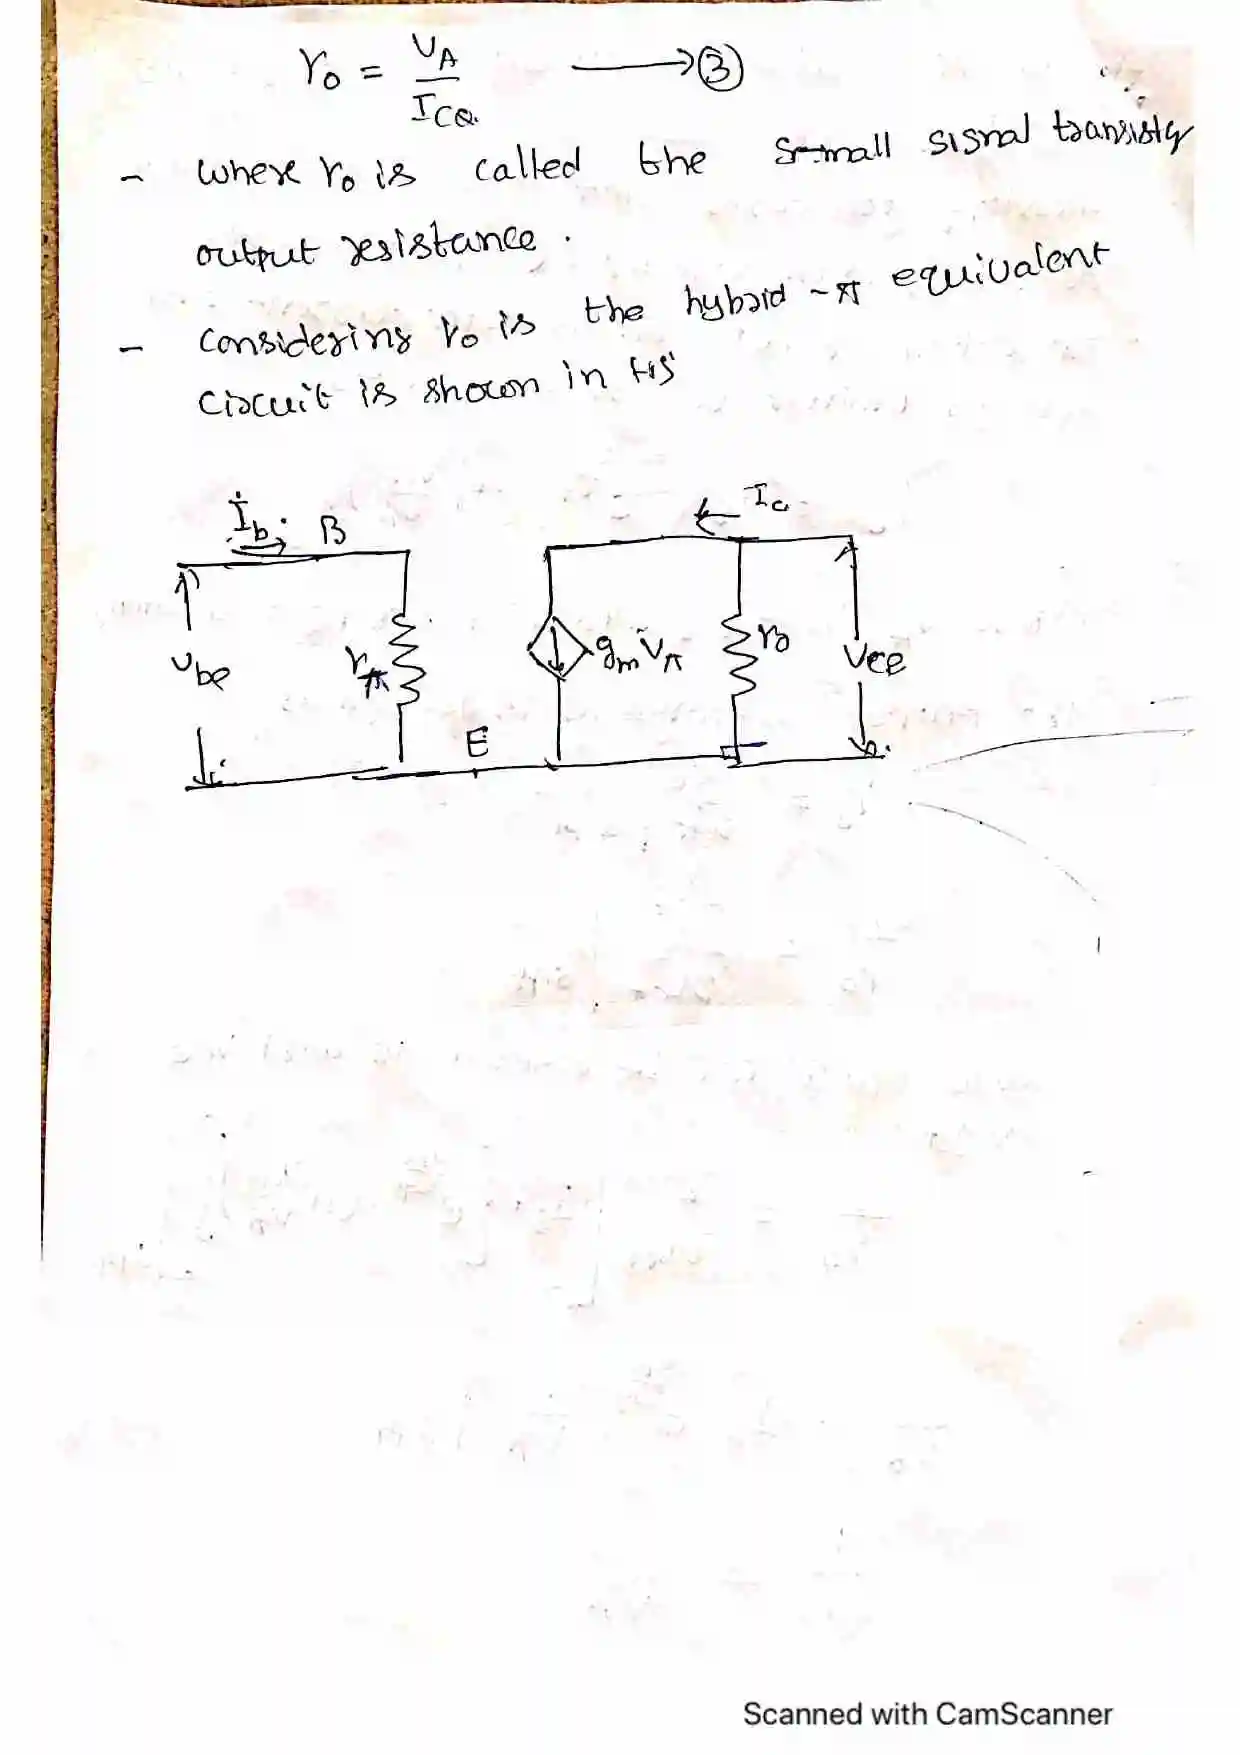 r₀ = V_A / I_CQ → ③
- where r₀ is called the small signal transistor
output resistance.
- considering r₀ is the hybrid-π equivalent
circuit is shown in fig
I_b B I_c
V_be r_π g_m V_π r₀ V_ce
E
Scanned with CamScanner